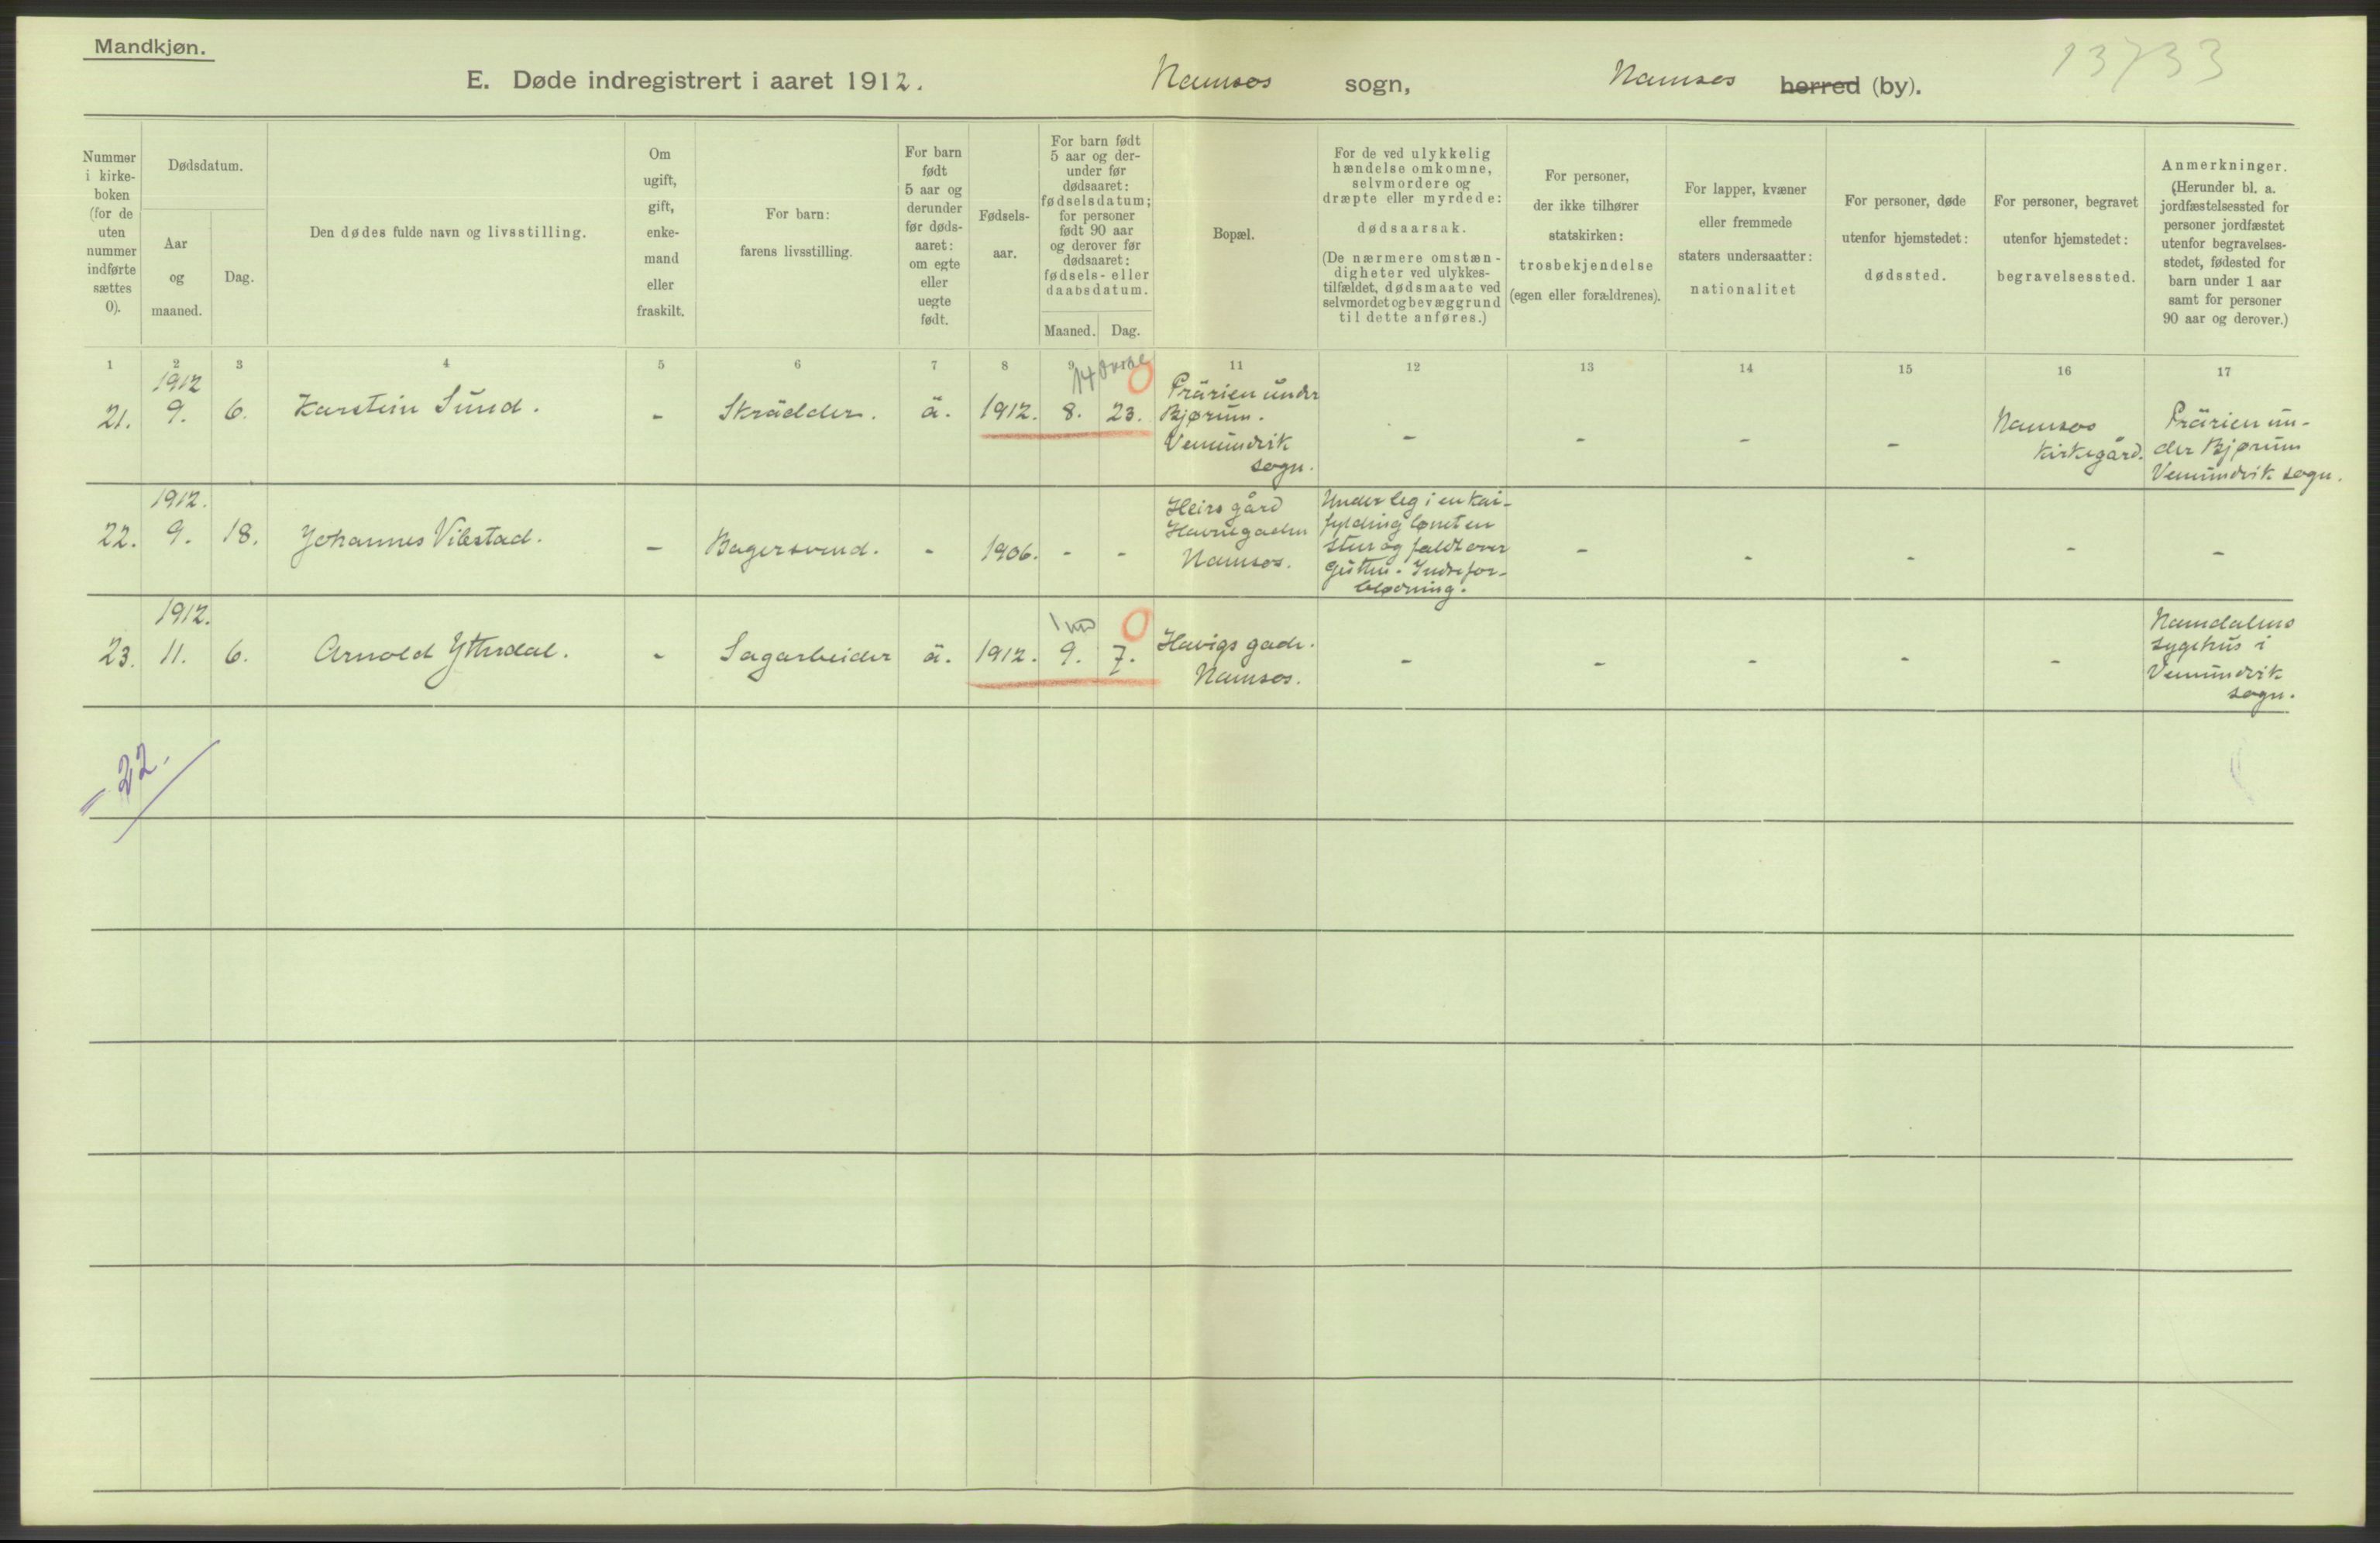 Mandkjøn.
13733
E. Døde indregistrert i aaret 1912. Namsos sogn, Namsos herred (by).
Nummer
i kirke-
boken
(for de
uten
nummer
indførte
sættes
0).
Dødsdatum.
Aar
og
maaned.
Dag.
Den dødes fulde navn og livsstilling.
Om
ugift,
gift,
enke-
mand
eller
fraskilt.
For barn:
farens livsstilling.
For barn
født
5 aar og
derunder
før døds-
aaret:
om egte
eller
uegte
født.
Fødsels-
aar.
For barn født
5 aar og der-
under før
dødsaaret:
fødselsdatum;
for personer
født 90 aar
og derover før
dødsaaret:
fødsels- eller
daabsdatum.
Maaned. Dag.
Bopæl.
For de ved ulykkelig
hændelse omkomne,
selvmordere og
dræpte eller myrdede:
dødsaarsak.
(De nærmere omstæn-
digheter ved ulykkes-
tilfældet, dødsmaate ved
selvmordet og bevæggrund
til dette anføres.)
For personer,
der ikke tilhører
statskirken:
trosbekjendelse
(egen eller forældrenes).
For lapper, kvæner
eller fremmede
staters undersaatter:
nationalitet
For personer, døde
utenfor hjemstedet:
dødssted.
For personer, begravet
utenfor hjemstedet:
begravelsessted.
Anmerkninger.
(Herunder bl. a.
jordfæstelsessted for
personer jordfæstet
utenfor begravelses-
stedet, fødested for
barn under 1 aar
samt for personer
90 aar og derover.)
1 2 3 4 5 6 7 8 9 11 12 13 14 15 16 17
1912
21. 9. 6. Karstein Sund. - Skrädder. ä. 1912. 8. 23.
14 0
Prärien under
Bjørum.
Vemundvik
sogn.
- - - -
Namsos
Kirkegård.
Prärien un-
der Bjørum
Vemundvik sogn.
1912.
22. 9. 18. Johannes Vibstad. - Bagersvend. - 1906. - -
Heirs gård
Havnegaden
Namsos.
Under leg i en kai-
fylding løsnet en
sten og faldt over
gutten. Indre for-
blødning.
- - - - -
1912.
23. 11. 6. Arnold Ytterdal. - Sagarbeider ä. 1912. 9. 7.
1 md 0
Havigs gade.
Namsos.
- - - - -
Namdalens
sygehus i
Vemundvik
sogn.
- 22.